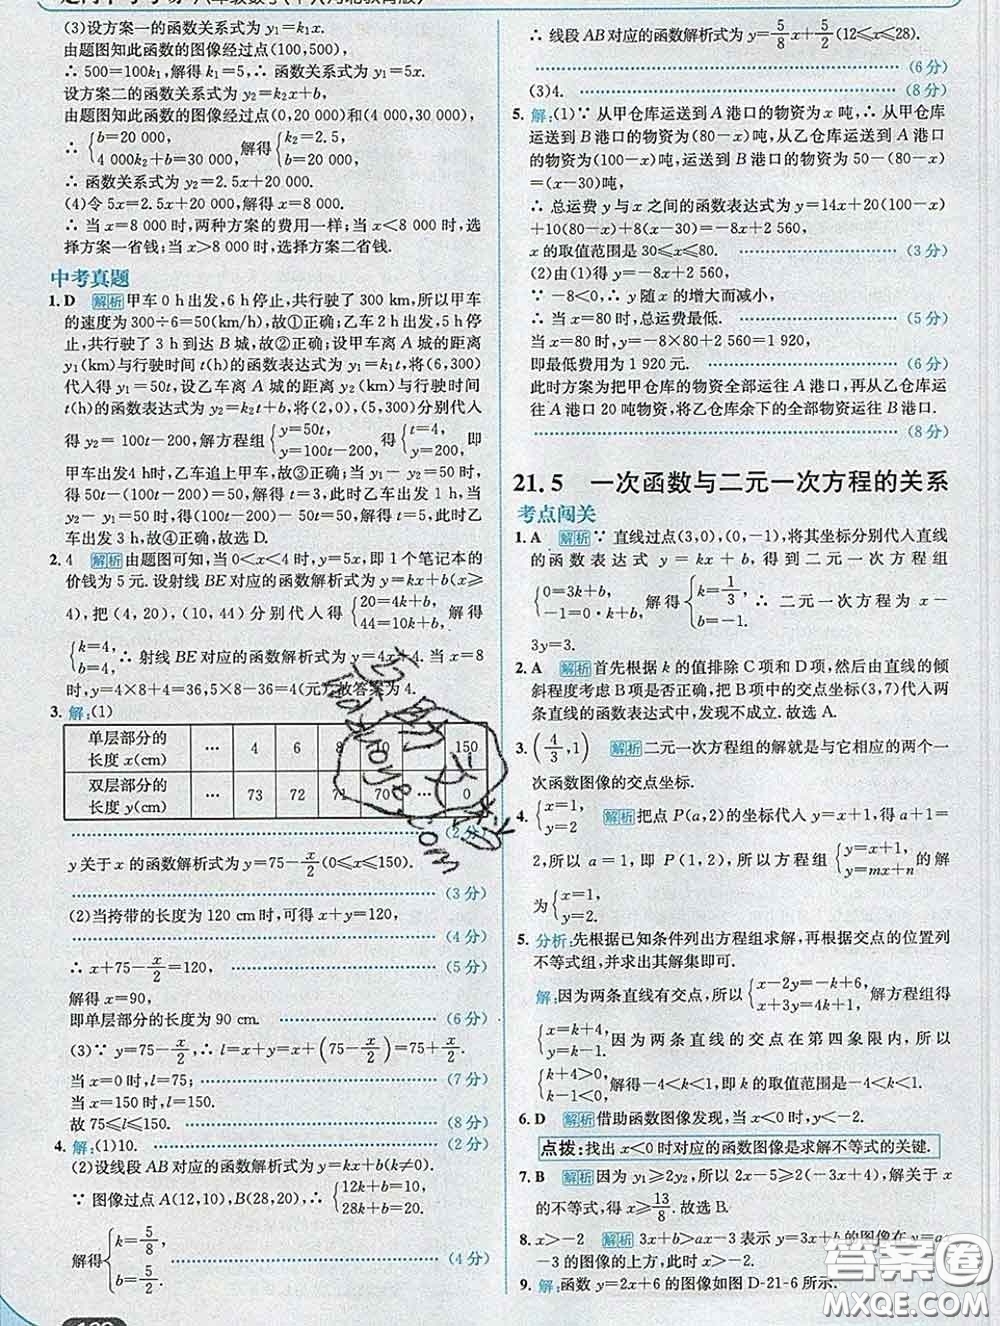 (3)设方案一的函数关系式为 y₁=k₁x.
由题图知此函数的图像经过点(100,500),
∴ 500=100k₁,解得 k₁=5,∴ 函数关系式为 y₁=5x.
设方案二的函数关系式为 y₂=k₂x+b,
由题图知此函数的图像经过点(0,20 000)和(4 000,
30 000),
∴ {b=20 000, 4 000k₂+b=30 000, 解得{k₂=2.5, b=20 000.
∴ 函数关系式为 y₂=2.5x+20 000.
(4)令 5x=2.5x+20 000,解得 x=8 000.
∴ 当 x=8 000 时,两种方案的费用一样;当 x<8 000 时,
选择方案一省钱;当 x>8 000 时,选择方案二省钱.
中考真题
1. D 解析 甲车 0 h 出发,6 h 停止,共行驶了 300 km,所以甲车
的速度为 300÷6=50(km/h),故①正确;乙车 2 h 出发,5 h 停
止,共行驶了 3 h 到达 B 城,故②正确;设甲车离 A 城的距离
y₁(km)与行驶时间 t(h)的函数表达式为 y₁=k₁t,将(6,300)
代入得 y₁=50t,设乙车离 A 城的距离 y₂(km)与行驶时间
t(h)的函数表达式为 y₂=k₂t+b,将(2,0),(5,300)分别代人
得 y₂= 100t-200,解方程组{y=50t, y=100t-200, 得{t=4, y=200, 即
甲车出发4 h时,乙车追上甲车,故③正确;当 y₁-y₂=50 时,
得 50t-(100t-200)=50,解得 t=3,此时乙车出发 1 h,当
y₂-y₁=50 时,得 100t-200-50t=50,解得 t=5,此时乙车
出发 3 h,故④正确.故选 D.
2. 4 解析 由题图可知,当 0<x<4 时,y=5x,即 1 个笔记本的
价钱为 5 元.设射线 BE 对应的函数解析式为 y=kx+b(x≥
4),把(4,20),(10,44)分别代人得{20=4k+b, 44=10k+b, 解得
{k=4, b=4, ∴ 射线 BE 对应的函数解析式为 y=4x+4. 当 x=8
时,y=4×8+4=36,5×8-36=4(元).故答案为 4.
3. 解:(1)
单层部分的长度 x(cm) … 4 6 8 10 … 150
双层部分的长度 y(cm) … 73 72 71 70 … 0
(2 分)
y 关于 x 的函数解析式为 y=75-x/2(0≤x≤150).
(3 分)
(2)当挎带的长度为 120 cm 时,可得 x+y=120,
(4 分)
∴ x+75-x/2=120, (5 分)
解得 x=90,
即单层部分的长度为 90 cm. (6 分)
(3)∵ y=75-x/2,∴ l=x+y=x+(75-x/2)=75+x/2.
当 x=0 时,l=75; (7 分)
当 x=150 时,l=150.
故 75≤l≤150. (8 分)
4. 解:(1)10. (2 分)
(2)设线段 AB 对应的函数解析式为 y=kx+b(k≠0).
∵ 图像过点 A(12,10),B(28,20),∴ {12k+b=10, 28k+b=20.
解得{k=5/8, b=5/2. (4 分)
∴ 线段 AB 对应的函数解析式为 y=5/8x+5/2(12≤x≤28).
(6 分)
(3)4. (8 分)
5. 解:(1)∵ 从甲仓库运送到 A 港口的物资为 x 吨,∴ 从甲仓库
运送到 B 港口的物资为(80-x)吨,从乙仓库运送到 A 港口
的物资为(100-x)吨,运送到 B 港口的物资为 50-(80-x)=
(x-30)吨,
∴ 总运费 y 与 x 之间的函数表达式为 y=14x+20(100-x)
+10(80-x)+8(x-30)=-8x+2 560,
x 的取值范围是 30≤x≤80. (3 分)
(2)由(1)得 y=-8x+2 560,
∵ -8<0,∴ y 随 x 的增大而减小,
∴ 当 x=80 时,总运费最低. (5 分)
当 x=80 时,y=-8×80+2 560=1 920,
即最低费用为 1 920 元. (6 分)
此时方案为把甲仓库的物资全部运往 A 港口,再从乙仓库运
往 A 港口 20 吨物资,将乙仓库余下的全部物资运往 B 港口.
(8 分)
21.5 一次函数与二元一次方程的关系
考点闯关
1. A 解析 ∵ 直线过点(3,0),(0,-1),将其坐标分别代入直线
的函数表达式 y=kx+b,得到二元一次方程组
{0=3k+b, -1=0·k+b, 解得{k=1/3, b=-1. ∴ 二元一次方程为 x-
3y=3.
2. A 解析 首先根据 k 的值排除 C 项和 D 项,然后由直线的倾
斜程度考虑 B 项是否正确,把 B 项中的交点坐标(3,7)代人两
条直线的函数表达式中,发现不成立.故选 A.
3. (4/3,1) 解析 二元一次方程组的解就是与它相应的两个一
次函数图像的交点坐标.
4. {x=1, y=2 解析 把点 P(a,2)的坐标代人 y=x+1,得 a+1=
2,所以 a=1,即 P(1,2),所以方程组{y=x+1, y=mx+n 的解
为{x=1, y=2.
5. 分析:先根据已知条件列出方程组求解,再根据交点的位置列
不等式组,并求出其解集即可.
解:因为两条直线有交点,所以{x-2y=-k+6, x+3y=4k+1, 解方程组得
{x=k+4, y=k-1. 因为两条直线的交点在第四象限内,所以
{k+4>0, k-1<0, 解得-4<k<1,即 k 的取值范围是-4<k<1.
6. D 解析 借助函数图像发现,当 x<0 时,y<-2.
点拨:找出 x<0 时对应的函数图像是求解不等式的关键.
7. B 解析 因为 y₁≥2y₂,所以 2x-5≥2(-3x+4),解关于 x
的不等式,得 x≥13/8.故选 B.
8. x>-2 解析 3x+b>ax-3 表示 y=3x+b 的图像在 y=ax
-3 的图像的上方,此时 x>-2.
9. 解:函数 y=2x+6 的图像如图 D-21-6 所示.
答案圈
MXQE.COM